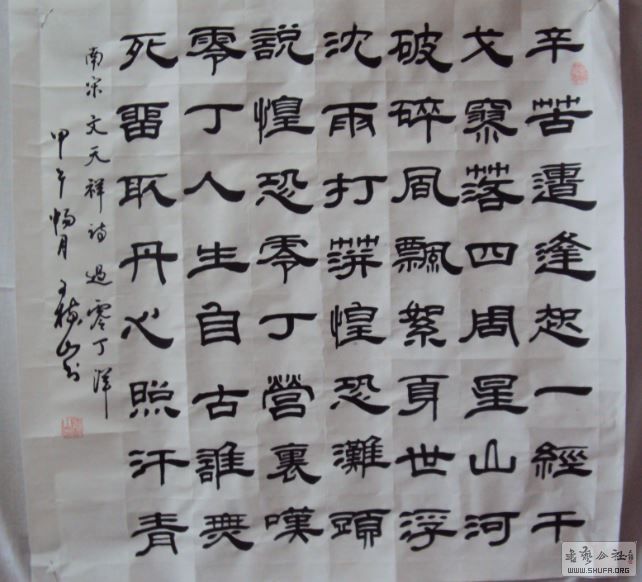 辛苦遭逢起一經干
戈寥落四周星山河
破碎風飄絮身世浮
沈雨打萍惶恐灘頭
說惶恐零丁營裏嘆
零丁人生自古誰無
死留取丹心照汗青
南宋文天祥诗過零丁洋
甲午暢月 山书
書藝公社
WWW.SHUFA.ORG